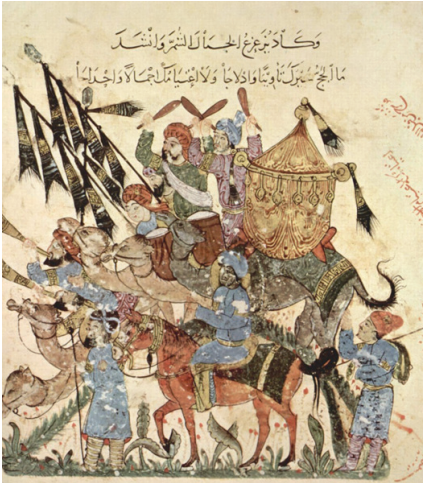 وكاد يزعزع الجبال الشم وانشد
ما الحج سيرك تاويبا وادلاجا ولا اعتيامك اجمالا واحداجا